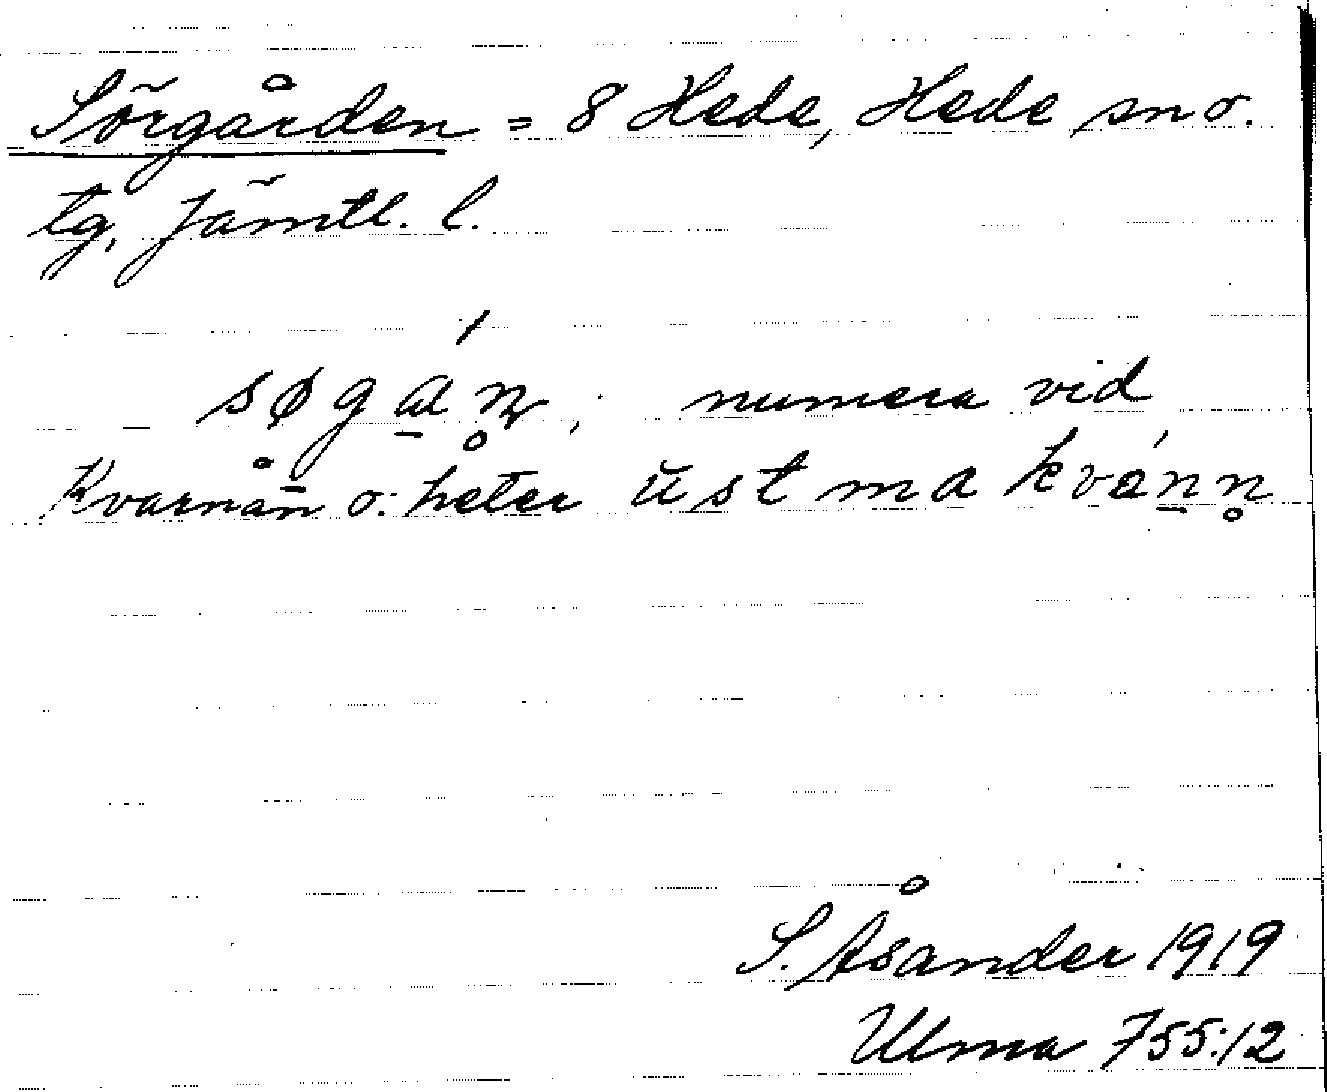 Sörgården = 8 Hede, Hede sn o.
tg, Jämtl. l.
søgá̱n̥; numera vid
Kvarnån o. heter üst ma kváṉn̥
S. Åsander 1919
Ulma 755:12